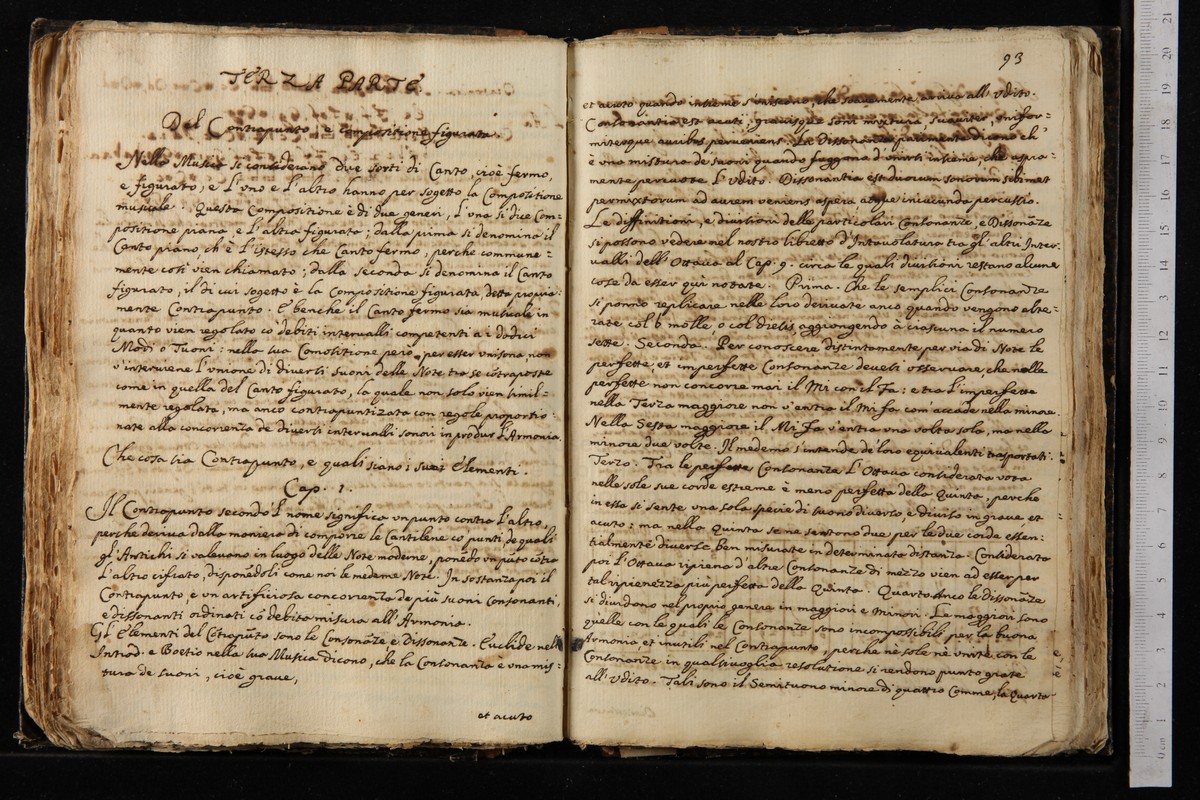 TERZA PARTE
Del Contrapunto, e Compositione figurata.
Nella Musica si considerano due sorti di Canto, cioè fermo,
e figurato; e l'uno e l'altro hanno per sogetto la Compositione
musicale. Questa Compositione è di due generi, l'una si dice Com=
positione piana, e l'altra figurata: dalla prima si denomina il
Canto piano, ch'è l'istesso che Canto fermo, perche commune=
mente così vien chiamato; dalla seconda si denomina il Canto
figurato, il di cui sogetto è la Compositione figurata detta propria=
mente Contrapunto. E benche il Canto fermo sia musicale in
quanto vien regolato cõ debiti intervalli competenti a i dodici
Modi o Tuoni: nella sua Comositione però, per esser unisona non
v'interviene l'unione di diversi suoni delle Note tra se cõtraposte
come in quella del Canto figurato, la quale non solo vien simil=
mente regolata, ma anco contrapuntizata con regole proportio=
nate alla concorrenza de diversi intervalli sonori in produr l'Armonia.
Che cosa sia Contrapunto, e quali siano i suoi Elementi.
Cap. 1.
Il Contrapunto secondo l nome significa un punto contra l'altro,
perche deriva dalla maniera di comporre le Cantilene cõ punti de quali
gl'Antichi si valevano in luogo delle Note moderne, ponẽdo un pũto cõtro
l'altro cifrato, disponẽdoli come noi le medeme Note. In sostanza poi il
Contrapunto, e un artificiosa concorrenza de più suoni Consonanti,
e dissonanti ordinati cõ debita misura all'Armonia.
Gl'Elementi del Cõtrapũto sono le Consonãze, e Dissonanze. Euclide nel
Introd. e Boetio nella sua Musica dicono, che la Consonanza e una mis=
tura de suoni, cioè grave,
et acuto
93
et acuto quando insieme s'uniscono, che soavemente arriva all'Udito.
Consonantia est acuti, gravisque soni mixtura suaviter, unifor=
miterque auribus perveniens. La Dissonanza parimente dicono ch'
è una mistura de suoni quando fuggono d'unirsi insieme, che aspra=
mente percuote l'Udito. Dissonantia est duorum sonorum sibimet
permixtorum ad aurem veniens aspera atque iniucunda percussio.
Le diffinitioni, e divisioni delle particolari Consonanze, e Dissonãze
si possono vedere nel nostro libretto d'Intavolatura tra gl'altri Inter=
valli dell'Ottava al Cap. 9. circa le quali divisioni restano alcune
cose da esser qui notate. Prima. Che le semplici Consonanze
si ponno replicare nelle loro derivate anco quando vengono alte=
rate col b molle, o col diesis, aggiongendo a ciascuna il numero
sette. Seconda. Per conoscere distintamente per via di Note le
perfette, et imperfette Consonanze devesi osservare, che nelle
perfette non concorre mai il Mi con il Fa: e tra l'imperfette
nella Terza maggiore non v'entra il Mi fa com accade nella minore.
Nella Sesta maggiore il Mi Fa v'entra una volta sola, ma nella
minore due volte. Il medemo s'intende de loro equivalenti trasportati.
Terzo. Tra le perfette Consonanze l'Ottava considerata vota
nelle sole sue corde estreme è meno perfetta della Quinta, perche
in essa si sente una sola specie di suono diverso, e diviso in grave, et
acuto: ma nella Quinta se ne sentono due per le due corde essen=
tialmente diverse, ben misurate in determinata distanza. Considerata
poi l'Ottava ripiena d'altre Consonanze di mezzo vien ad esser per
tal ripienezza più perfetta della Quinta. Quarto. Anco le Dissonãze
si dividono nel proprio genere in maggiori e Minori. Le maggiori sono
quelle con le quali le Consonanze sono incompossibili per la buona
Armonia, et inutili nel Contrapunto, perche nè sole nè unite con le
Consonanze in qualsivoglia resolutione si rendono punto grate
all'Udito. Tali sono il Semituono minore di quattro Comme, la Quarta